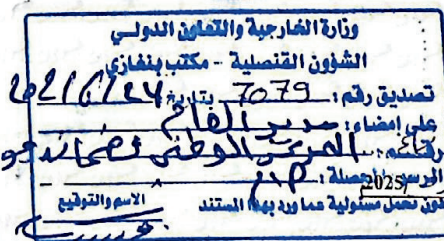 وزارة الخارجية والتعاون الدولي
الشؤون القنصلية - مكتب بنغازي
تصديق رقم: 7079 بتاريخ:
على إمضاء: مدير العام
المركز الوطني
الرسوم المحصلة:
2025/
دون تحمل مسئولية عما ورد بهذا المستند
الاسم والتوقيع